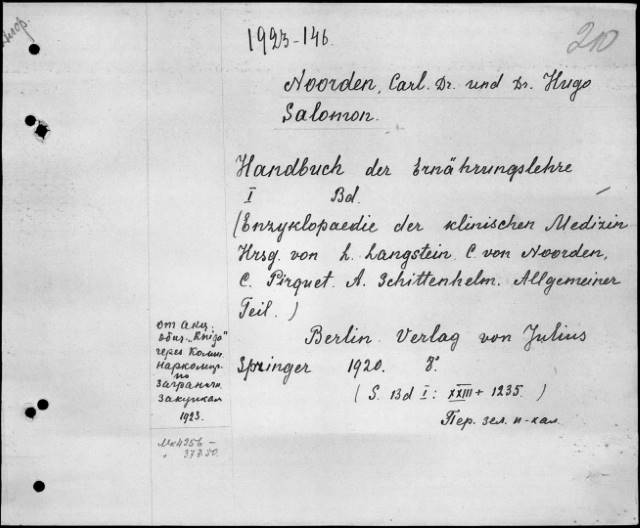 1923-146.
210
Noorden, Carl. Dr. und Dr. Hugo
Salomon.
Handbuch der Ernährungslehre
I Bd.
(Enzyklopaedie der klinischen Medizin
Hrsg. von L. Langstein. C. von Noorden,
C. Pirquet. A. Schittenhelm. Allgemeiner
Teil.)
Berlin. Verlag von Julius
Springer 1920. 8°.
(S. Bd I: XXIII + 1235.)
Пер. зел. н-кал.
от акц.
общ. „Книга"
через Комис.
Наркомпр.
по
Загранич.
Закупкам
1923.